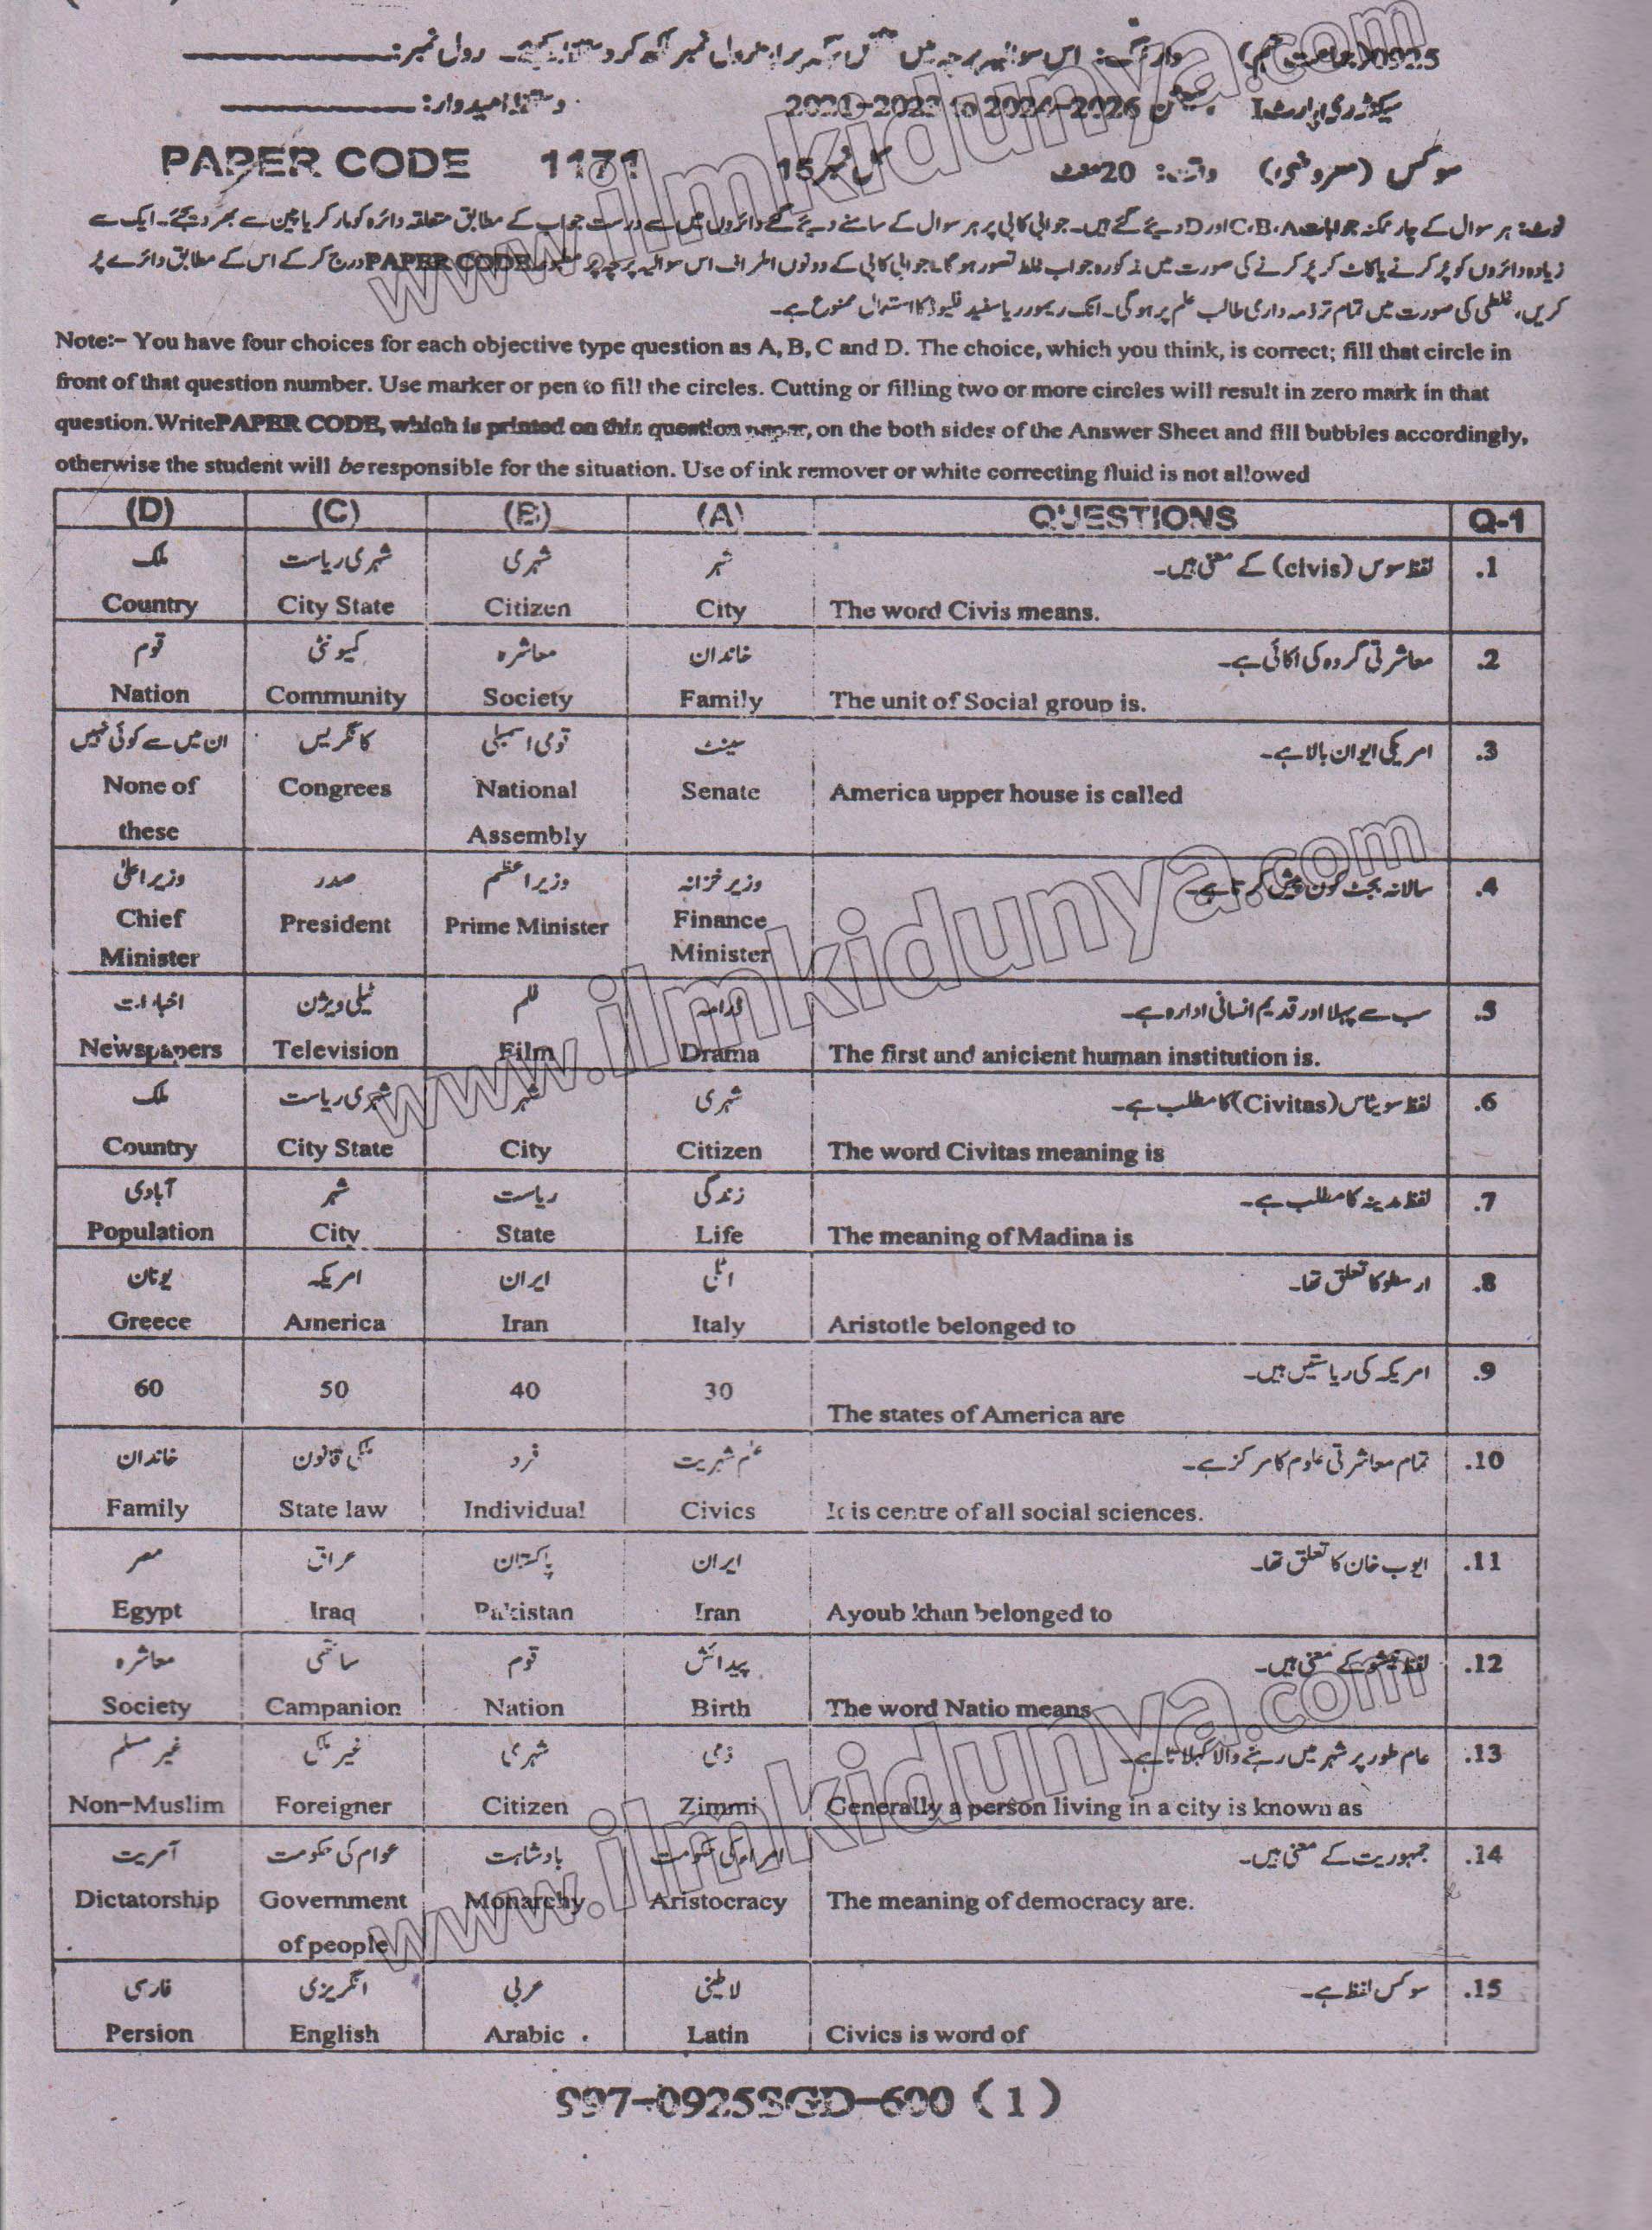 0925 (جماعت نہم) وارننگ: اس سوالیہ پرچہ میں مختص جگہ پر اپنا رول نمبر لکھ کر دستخط کیجئے۔ رول نمبر:
سیکنڈری پارٹ I سیشن 2021-2023 to 2024-2026 دستخط امیدوار:
سوکس (معروضی) وقت: 20 منٹ کل نمبر 15 PAPER CODE 1171
نوٹ: ہر سوال کے چار ممکنہ جوابات C، B، A اور D دیئے گئے ہیں۔ جوابی کاپی پر ہر سوال کے سامنے دیئے گئے دائروں میں سے درست جواب کے مطابق متعلقہ دائرہ کو مارکر یا پین سے بھر دیجئے۔ ایک سے
زیادہ دائروں کو پُر کرنے یا کاٹ کر پُر کرنے کی صورت میں مذکورہ جواب غلط تصور ہوگا۔ جوابی کاپی کے دونوں اطراف اس سوالیہ پرچہ پر مطبوعہ PAPER CODE درج کر کے اس کے مطابق دائرے پُر
کریں، غلطی کی صورت میں تمام تر ذمہ داری طالب علم پر ہوگی۔ انک ریموور یا سفید فلیوڈ کا استعمال ممنوع ہے۔
Note:- You have four choices for each objective type question as A, B, C and D. The choice, which you think, is correct; fill that circle in
front of that question number. Use marker or pen to fill the circles. Cutting or filling two or more circles will result in zero mark in that
question. Write PAPER CODE, which is printed on this question paper, on the both sides of the Answer Sheet and fill bubbles accordingly,
otherwise the student will be responsible for the situation. Use of ink remover or white correcting fluid is not allowed
(D) (C) (B) (A) QUESTIONS Q-1
ملک شہری ریاست شہری شہر لفظ سوس (civis) کے معنی ہیں۔ .1
Country City State Citizen City The word Civis means.
قوم کمیونٹی معاشرہ خاندان معاشرتی گروہ کی اکائی ہے۔ .2
Nation Community Society Family The unit of Social group is.
ان میں سے کوئی نہیں کانگریس قومی اسمبلی سینٹ امریکی ایوان بالا ہے۔ .3
None of Congrees National Senate America upper house is called
these Assembly
وزیر اعلیٰ صدر وزیر اعظم وزیر خزانہ سالانہ بجٹ کون پیش کرتا ہے۔ .4
Chief President Prime Minister Finance
Minister Minister
اخبارات ٹیلی ویژن فلم ڈرامہ سب سے پہلا اور قدیم انسانی ادارہ ہے۔ .5
Newspapers Television Film Drama The first and anicient human institution is.
ملک شہری ریاست شہر شہری لفظ سویٹاس (Civitas) کا مطلب ہے۔ .6
Country City State City Citizen The word Civitas meaning is
آبادی شہر ریاست زندگی لفظ مدینہ کا مطلب ہے۔ .7
Population City State Life The meaning of Madina is
یونان امریکہ ایران اٹلی ارسطو کا تعلق تھا۔ .8
Greece America Iran Italy Aristotle belonged to
امریکہ کی ریاستیں ہیں۔ .9
60 50 40 30 The states of America are
خاندان ملکی قانون فرد علم شہریت تمام معاشرتی علوم کا مرکز ہے۔ .10
Family State law Individual Civics It is centre of all social sciences.
مصر عراق پاکستان ایران ایوب خان کا تعلق تھا۔ .11
Egypt Iraq Pakistan Iran Ayoub khan belonged to
معاشرہ ساتھی قوم پیدائش لفظ نیشو کے معنی ہیں۔ .12
Society Campanion Nation Birth The word Natio means
غیر مسلم غیر ملکی شہری ذمی عام طور پر شہر میں رہنے والا کہلاتا ہے۔ .13
Non-Muslim Foreigner Citizen Zimmi Generally a person living in a city is known as
آمریت عوام کی حکومت بادشاہت امراء کی حکومت جمہوریت کے معنی ہیں۔ .14
Dictatorship Government Monarchy Aristocracy The meaning of democracy are.
of people
فارسی انگریزی عربی لاطینی سوکس لفظ ہے۔ .15
Persion English Arabic . Latin Civics is word of
S97-0925SGD-600 (1)
www.ilmkidunya.com
www.ilmkidunya.com
www.ilmkidunya.com